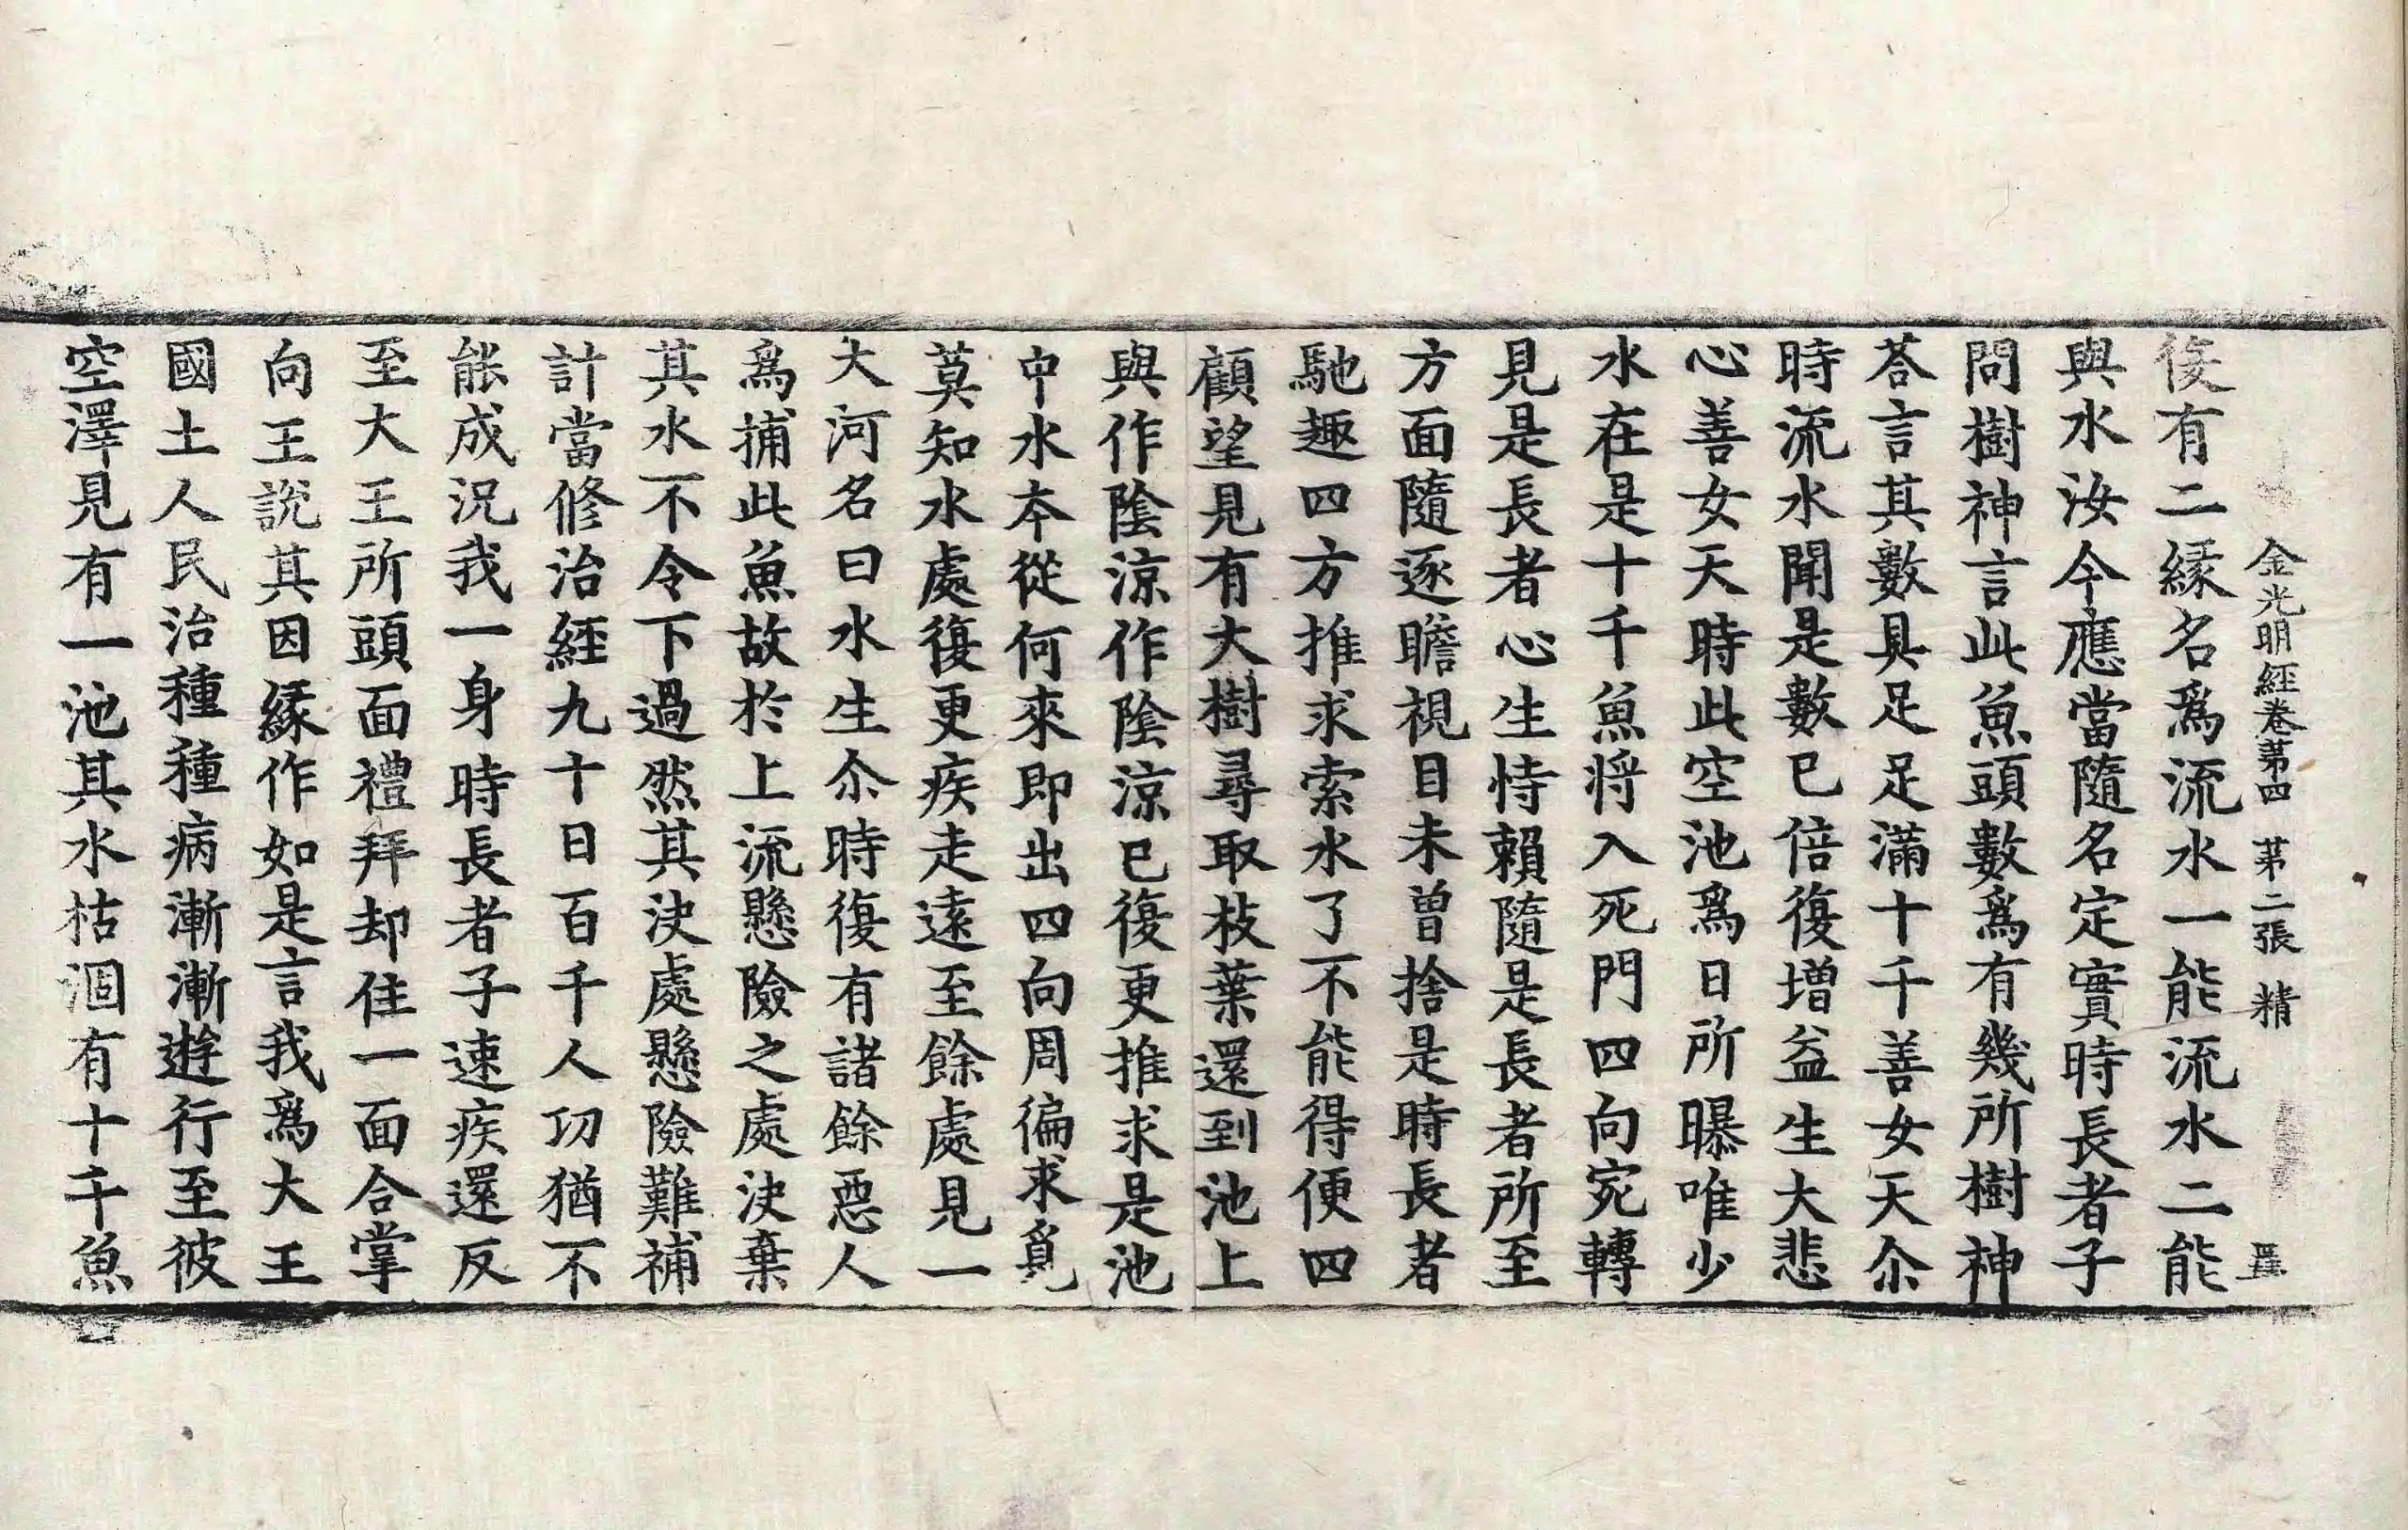 金光明經卷第四 第二張 精
復有二緣名爲流水一能流水二能
與水汝今應當隨名定實時長者子
問樹神言此魚頭數爲有幾所樹神
荅言其數具足足滿十千善女天尒
時流水聞是數已倍復增益生大悲
心善女天時此空池爲日所曝唯少
水在是十千魚將入死門四向宛轉
見是長者心生恃賴隨是長者所至
方面隨逐瞻視目未曾捨是時長者
馳趣四方推求索水了不能得便四
顧望見有大樹尋取枝葉還到池上
與作陰涼作陰涼已復更推求是池
中水本從何來即出四向周徧求覓
莫知水處復更疾走遠至餘處見一
大河名曰水生尒時復有諸餘惡人
爲捕此魚故於上流懸險之處決棄
其水不令下過然其決處懸險難補
計當修治經九十日百千人功猶不
能成況我一身時長者子速疾還反
至大王所頭面禮拜却住一面合掌
向王說其因緣作如是言我爲大王
國土人民治種種病漸漸遊行至彼
空澤見有一池其水枯涸有十千魚